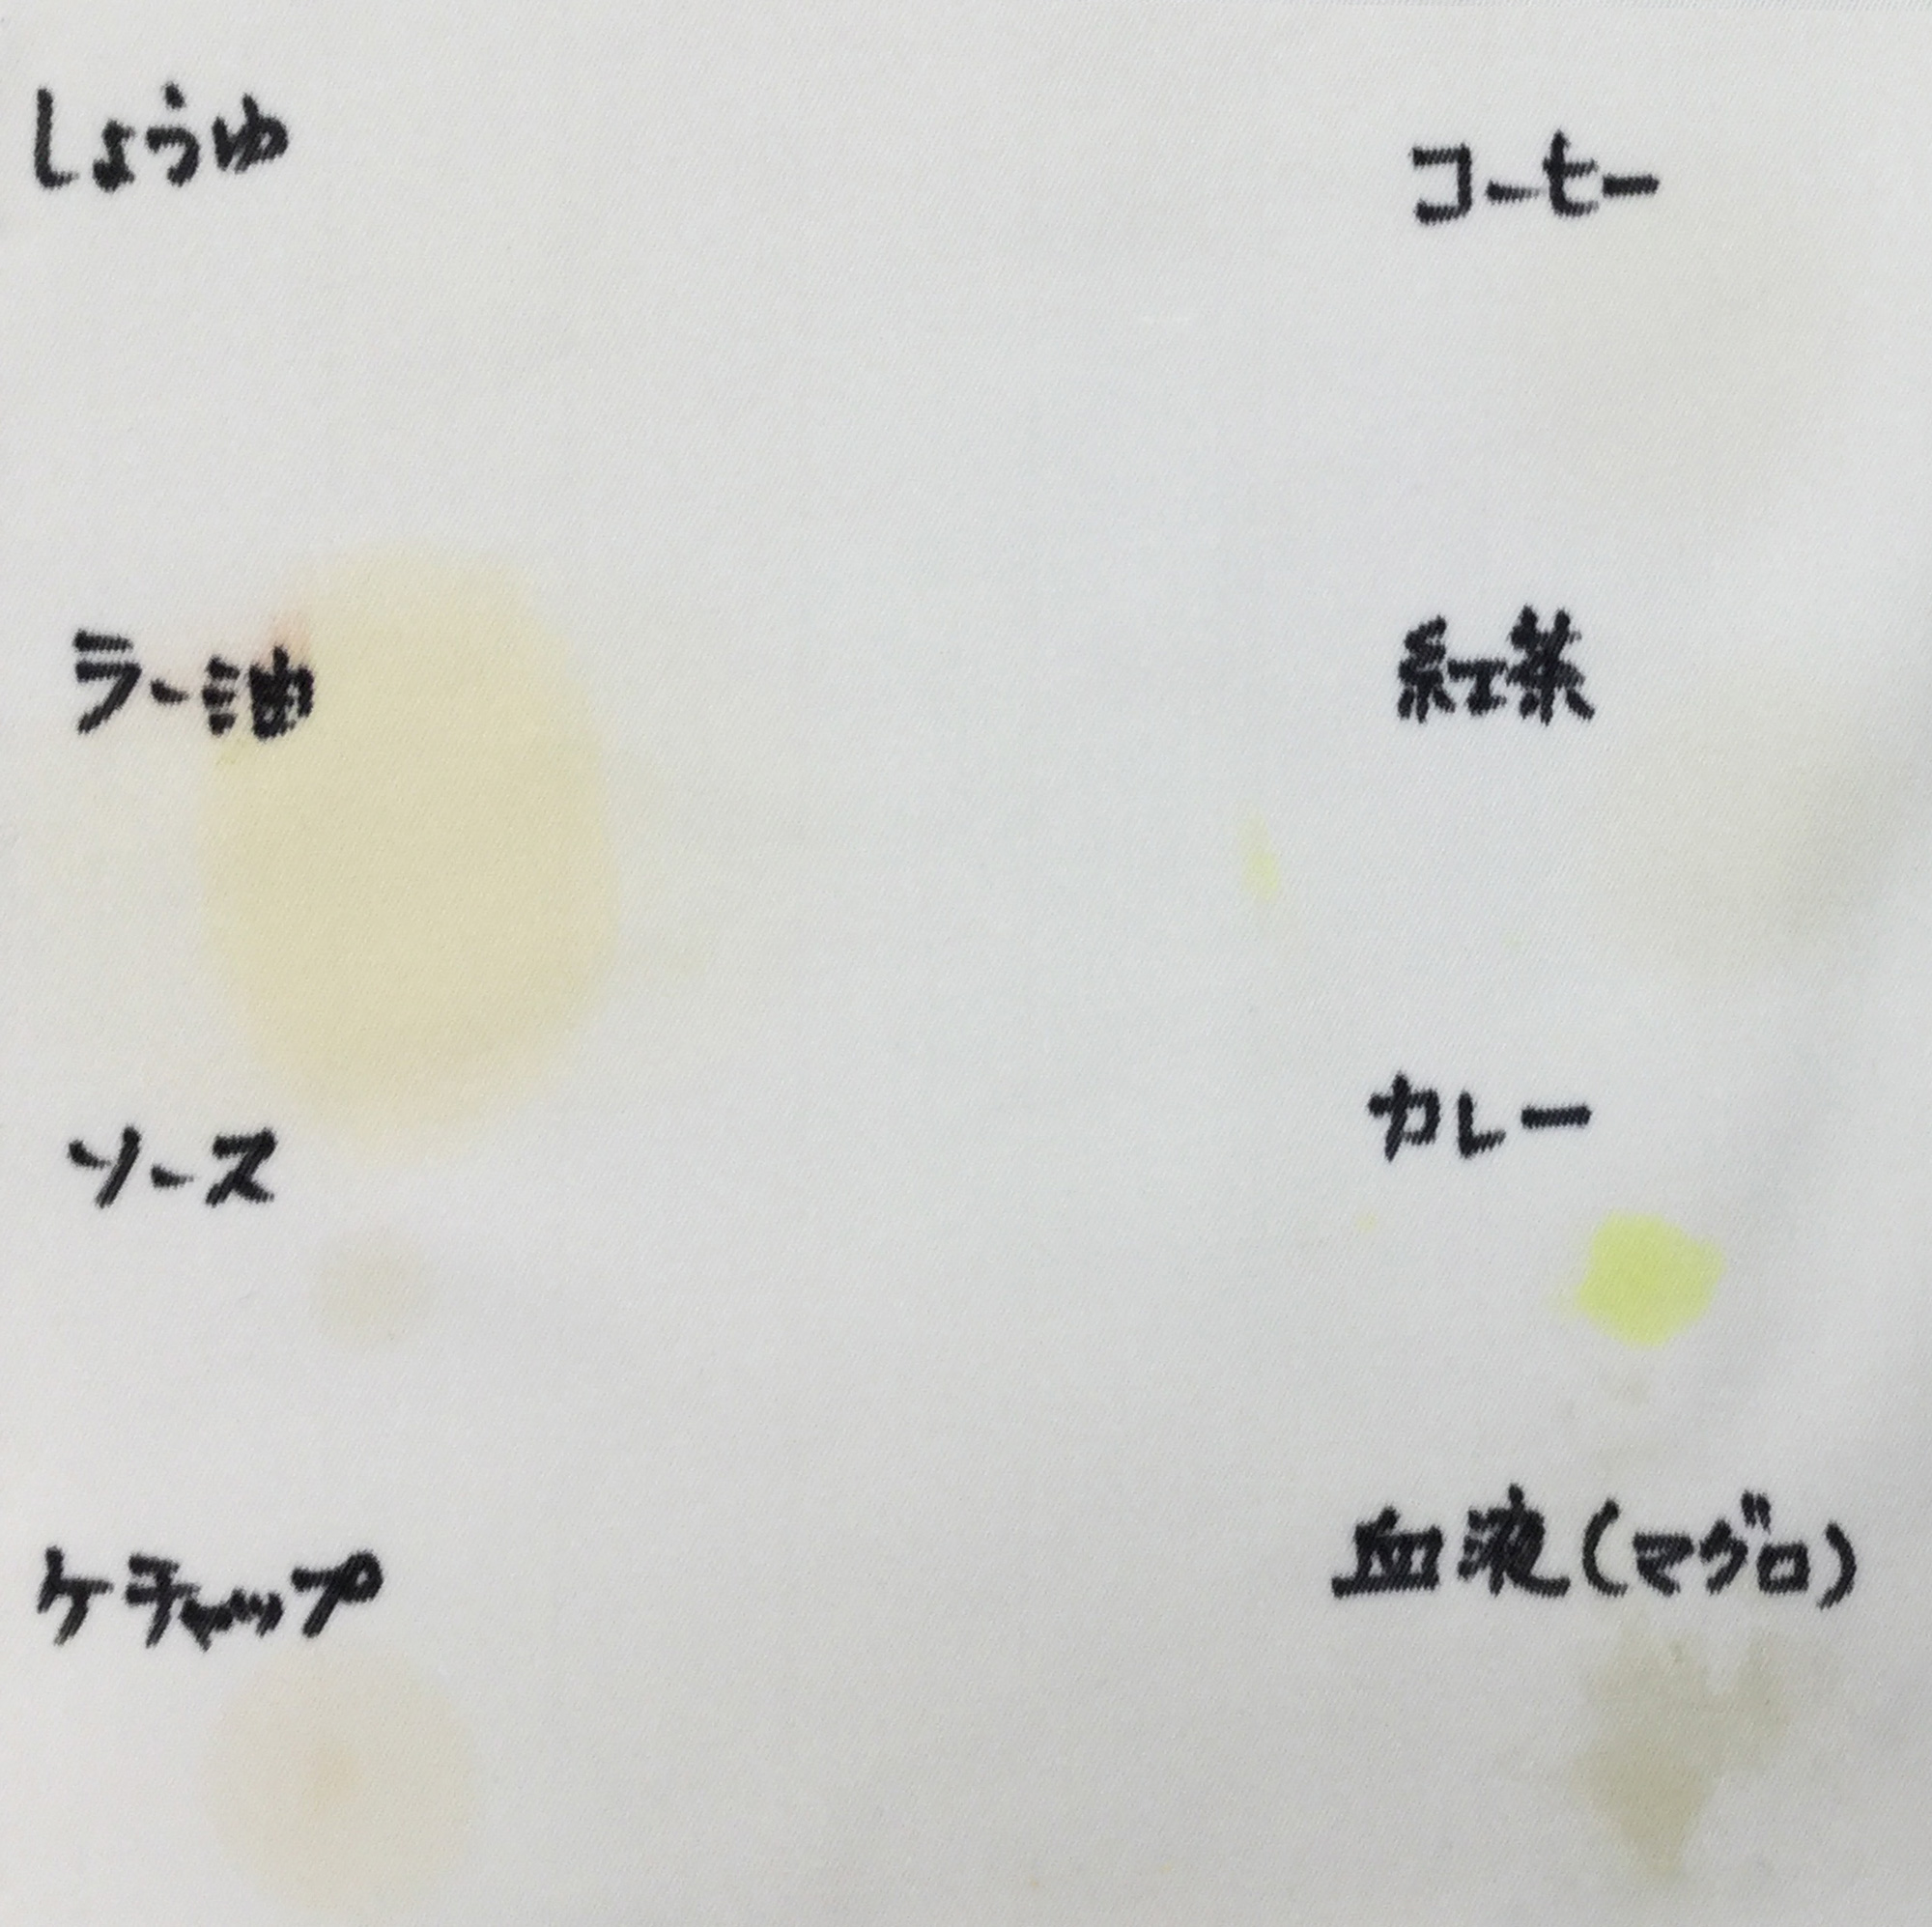 しょうゆ
コーヒー
ラー油
紅茶
カレー
ソース
血液(マグロ)
ケチャップ